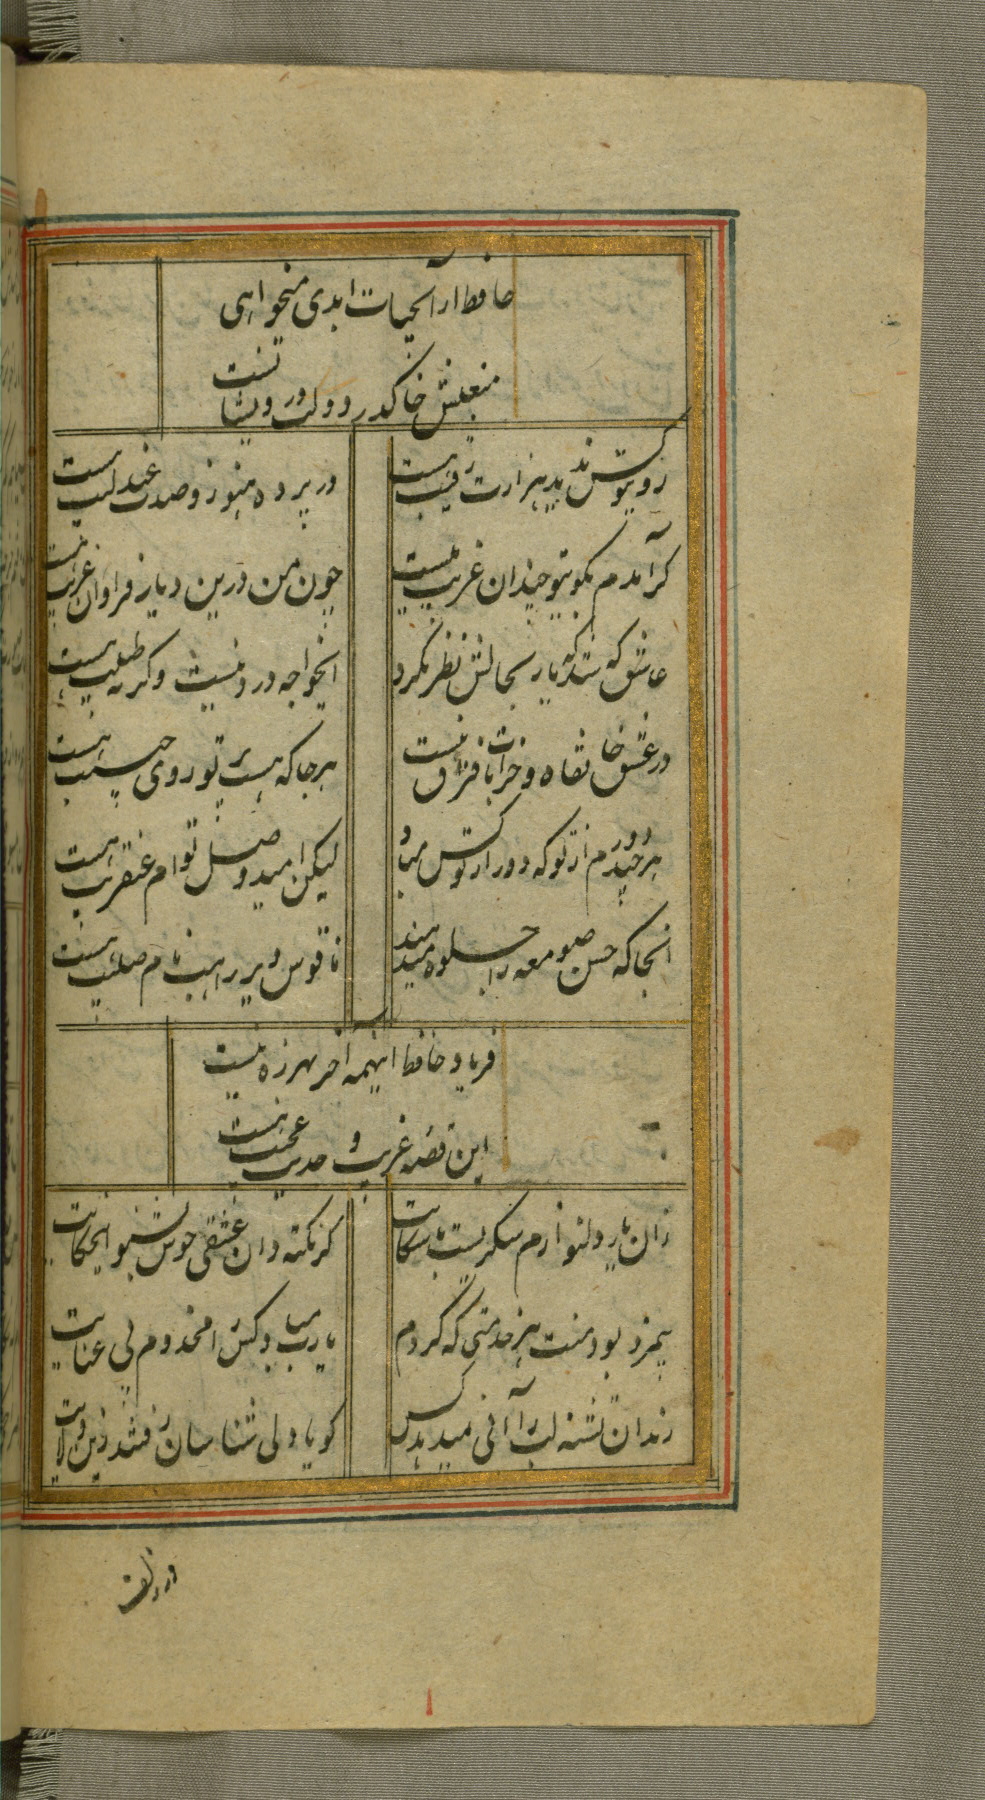 حافظ ار آبحیات ابدی میخواهی
منبعش خاک در دولت درویشانست
روی تو کس ندید هزارت رقیب هست
در پرده هنوز و صدت عندلیب هست
کر آمدم بکوی تو چندان غریب نیست
چون من درین دیار فراوان غریب هست
عاشق که شد که یار بحالش نظر نکرد
ایخواجه درد نیست وکرنه طبیب هست
در عشق خانقاه و خرابات فرق نیست
هر جا که هست پرتو روی حبیب هست
هر چند دورم از تو که دور از تو کس مباد
لیکن امید وصل توام عنقریب هست
انجا که حسن صومعه را جلوه میدهند
ناقوس دیر راهب و نام صلیب هست
فریاد حافظ اینهمه آخر بهرزه نیست
این قصه غریب و حدیث عجیب هست
زان یار دلنوازم شکریست با شکایت
کر نکته دان عشقی خوش بشنو این حکایت
بیمزد بود و منت هر خدمتی که کردم
یارب مباد کس را مخدوم بی عنایت
رندان تشنه لب را آبی نمیدهد کس
کویا ولی شناسان رفتند ازین ولایت
در زلف